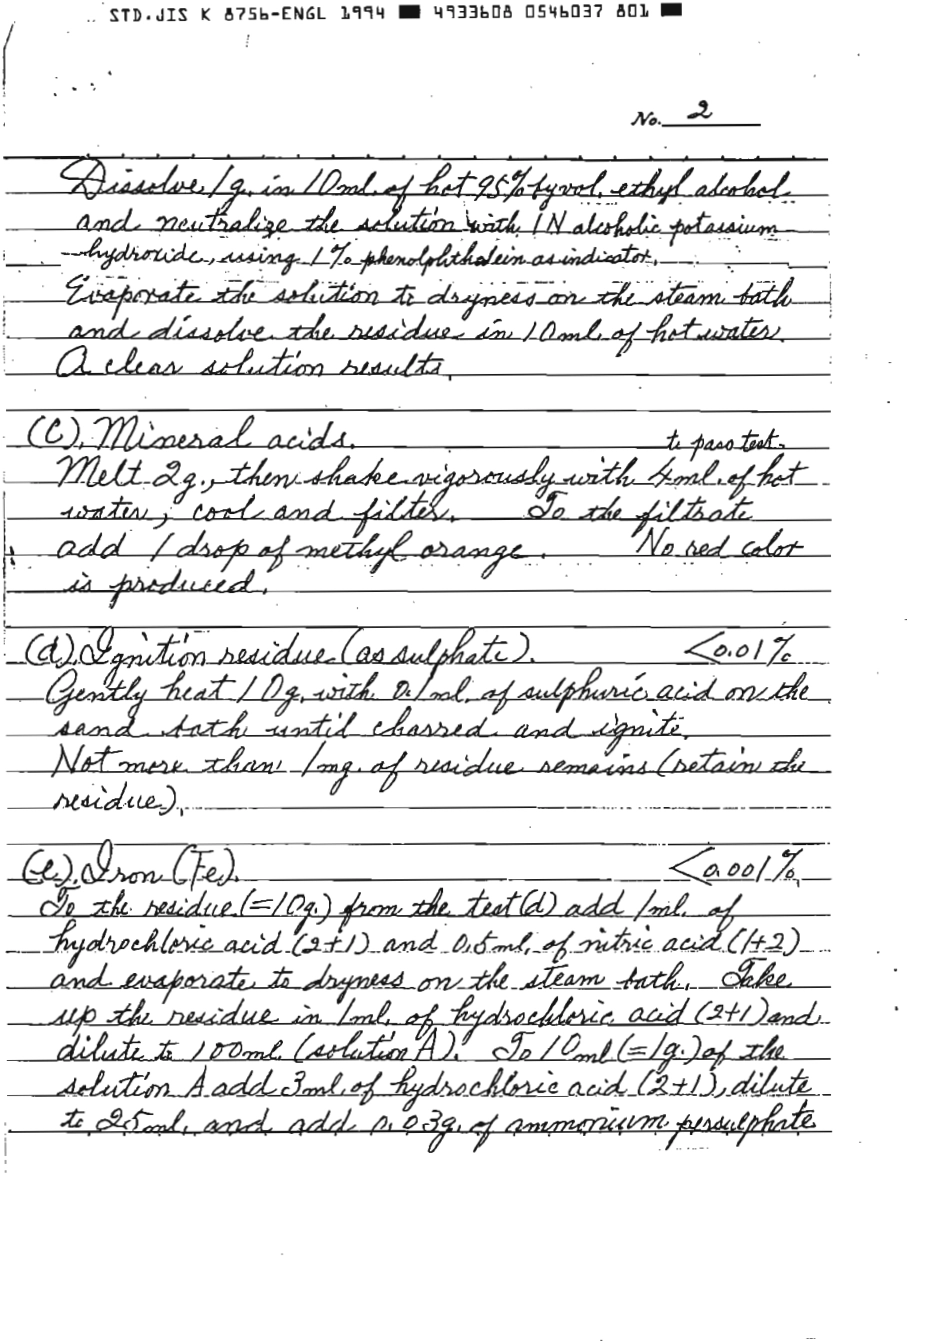 STD.JIS K 8756-ENGL 1994 ■ 4933608 0546037 801 ■
No. 2
Dissolve 1g. in 10ml. of hot 95% by vol. ethyl alcohol
and neutralize the solution with 1N alcoholic potassium
hydroxide, using 1% phenolphthalein as indicator.
Evaporate the solution to dryness on the steam bath
and dissolve the residue in 10ml. of hot water.
A clear solution results.
(C). Mineral acids. to pass test.
Melt 2g., then shake vigorously with 4ml. of hot
water, cool and filter. To the filtrate
add 1 drop of methyl orange. No red color
is produced.
(d). Ignition residue (as sulphate). <0.01%
Gently heat 10g. with 0.1ml. of sulphuric acid on the
sand bath until charred and ignite.
Not more than 1mg. of residue remains (retain the
residue).
(e). Iron (Fe). <0.001%
To the residue (=10g.) from the test (d) add 1ml. of
hydrochloric acid (2+1) and 0.5ml. of nitric acid (1+2)
and evaporate to dryness on the steam bath. Take
up the residue in 1ml. of hydrochloric acid (2+1) and
dilute to 100ml. (solution A). To 10ml (=1g.) of the
solution A add 3ml. of hydrochloric acid (2+1), dilute
to 25ml. and add 0.03g. of ammonium persulphate